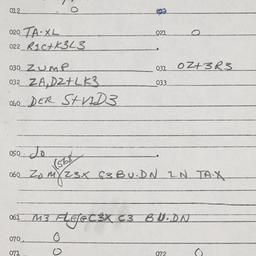 012 0
020 TA·XL 021 0
022 R1C+K3L3
030 ZUMP 031 OZ+3R3
032 ZA,DZ+LK3 033
040 DER S+ND3
050 Jo
060 ZOM Z3X G3BU·DN IN TA·X
061 M3 C3 BU·DN
070 0
071 0 072 0